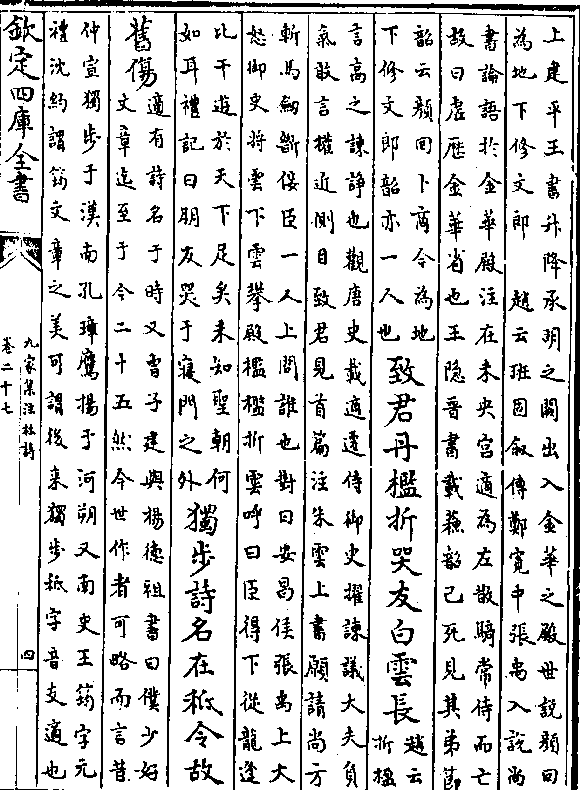 上建平王書升降承明之闕出入金華之殿世說顔回
為地下修文郎　趙云班固叙傳鄭寛中張禹入說尚
書論語於金華殿注在未央宮適為左散騎常侍而亡
故曰虚歴金華省也王隱晉書載蘇韶已死見其弟節
韶云顔回卜商今為地
下修文郎韶亦一人也
致君丹檻折哭友白雲長
趙云
折檻
言高之諫諍也觀唐史載適遷侍御史擢諫議大夫負
氣敢言權近側目致君見首篇注朱雲上書願請尚方
斬馬劔斷佞臣一人上問誰也對曰安昌侯張禹上大
怒御史將雲下雲攀殿檻檻折雲呼曰臣得下從龍逄
比干遊於天下足矣未知聖朝何
如耳禮記曰朋友哭于寢門之外
獨步詩名在秪令故
舊傷
適有詩名于時又曹子建與楊德祖書曰僕少好
文章迄至于今二十五然今世作者可略而言昔
仲宣獨步于漢南孔璋鷹揚于河朔又南史王筠字元
禮沈約謂筠文章之美可謂後来獨步秪字音支適也
欽定四庫全書
九家集注杜詩
卷二十七
四